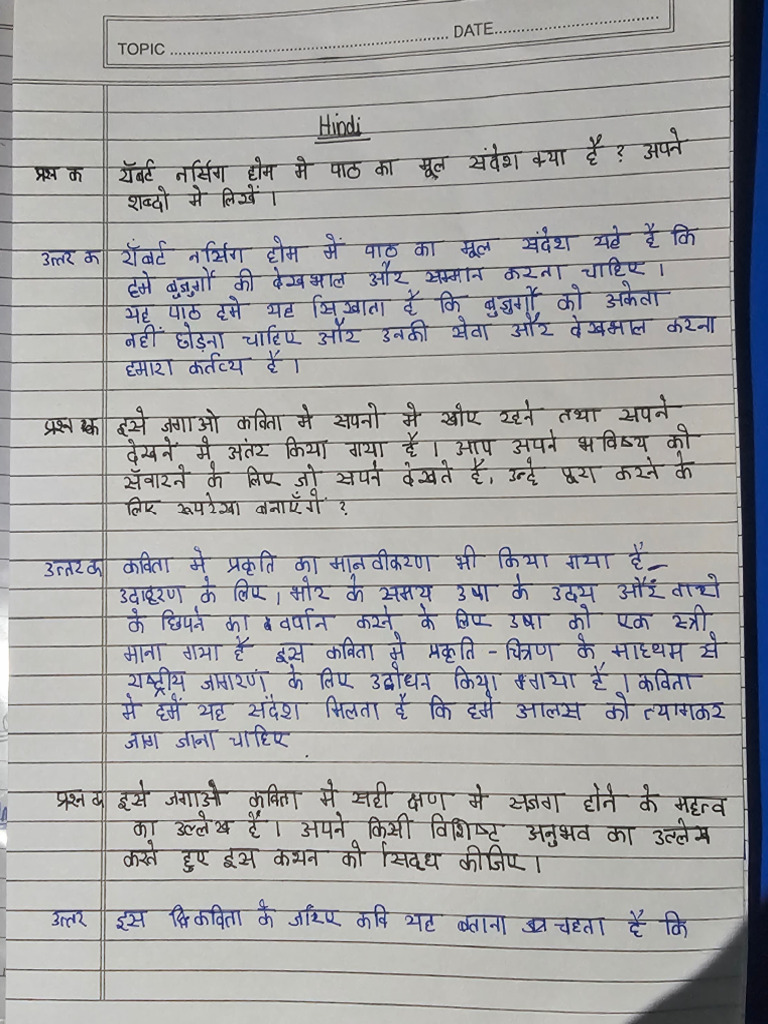 TOPIC ........................................ DATE........................................
Hindi
प्रश्न क रॉबर्ट नर्सिंग होम मे पाठ का मूल संदेश क्या है ? अपने
शब्दो मे लिखें ।
उत्तर क रॉबर्ट नर्सिंग होम में पाठ का मूल संदेश यहे है कि
हमे बुजुर्गों की देखभाल और सम्मान करना चाहिए ।
यह पाठ हमे यह सिखाता है कि बुजुर्गों को अकेला
नहीं छोड़ना चाहिए और उनकी सेवा और देखभाल करना
हमारा कर्तव्य है ।
प्रश्न क इसे जगाओ कविता मे सपनो मे खोए रहने तथा सपने
देखने में अंतर किया गया है । आप अपने भविष्य को
सँवारने के लिए जो सपने देखते है, उन्हे पूरा करने के
लिए रूपरेखा बनाएँगें ?
उत्तर क कविता मे प्रकृति का मानवीकरण भी किया गया है –
उदाहरण के लिए, भोर के समय उषा के उदय और तारो
के छिपने का वर्णन करने के लिए उषा को एक स्त्री
माना गया है इस कविता मे प्रकृति - चित्रण के माध्यम से
राष्ट्रीय जागरण के लिए उद्बोधन किया गया है । कविता
मे हमें यह संदेश मिलता है कि हमे आलस को त्यागकर
जाग जाना चाहिए
प्रश्न इसे जगाओ कविता मे सही क्षण मे सजग होने के महत्व
का उल्लेख है । अपने किसी विशिष्ट अनुभव का उल्लेख
करते हुए इस कथन को सिद्ध कीजिए ।
उत्तर इस कविता के जरिए कवि यह बताना चहता है कि